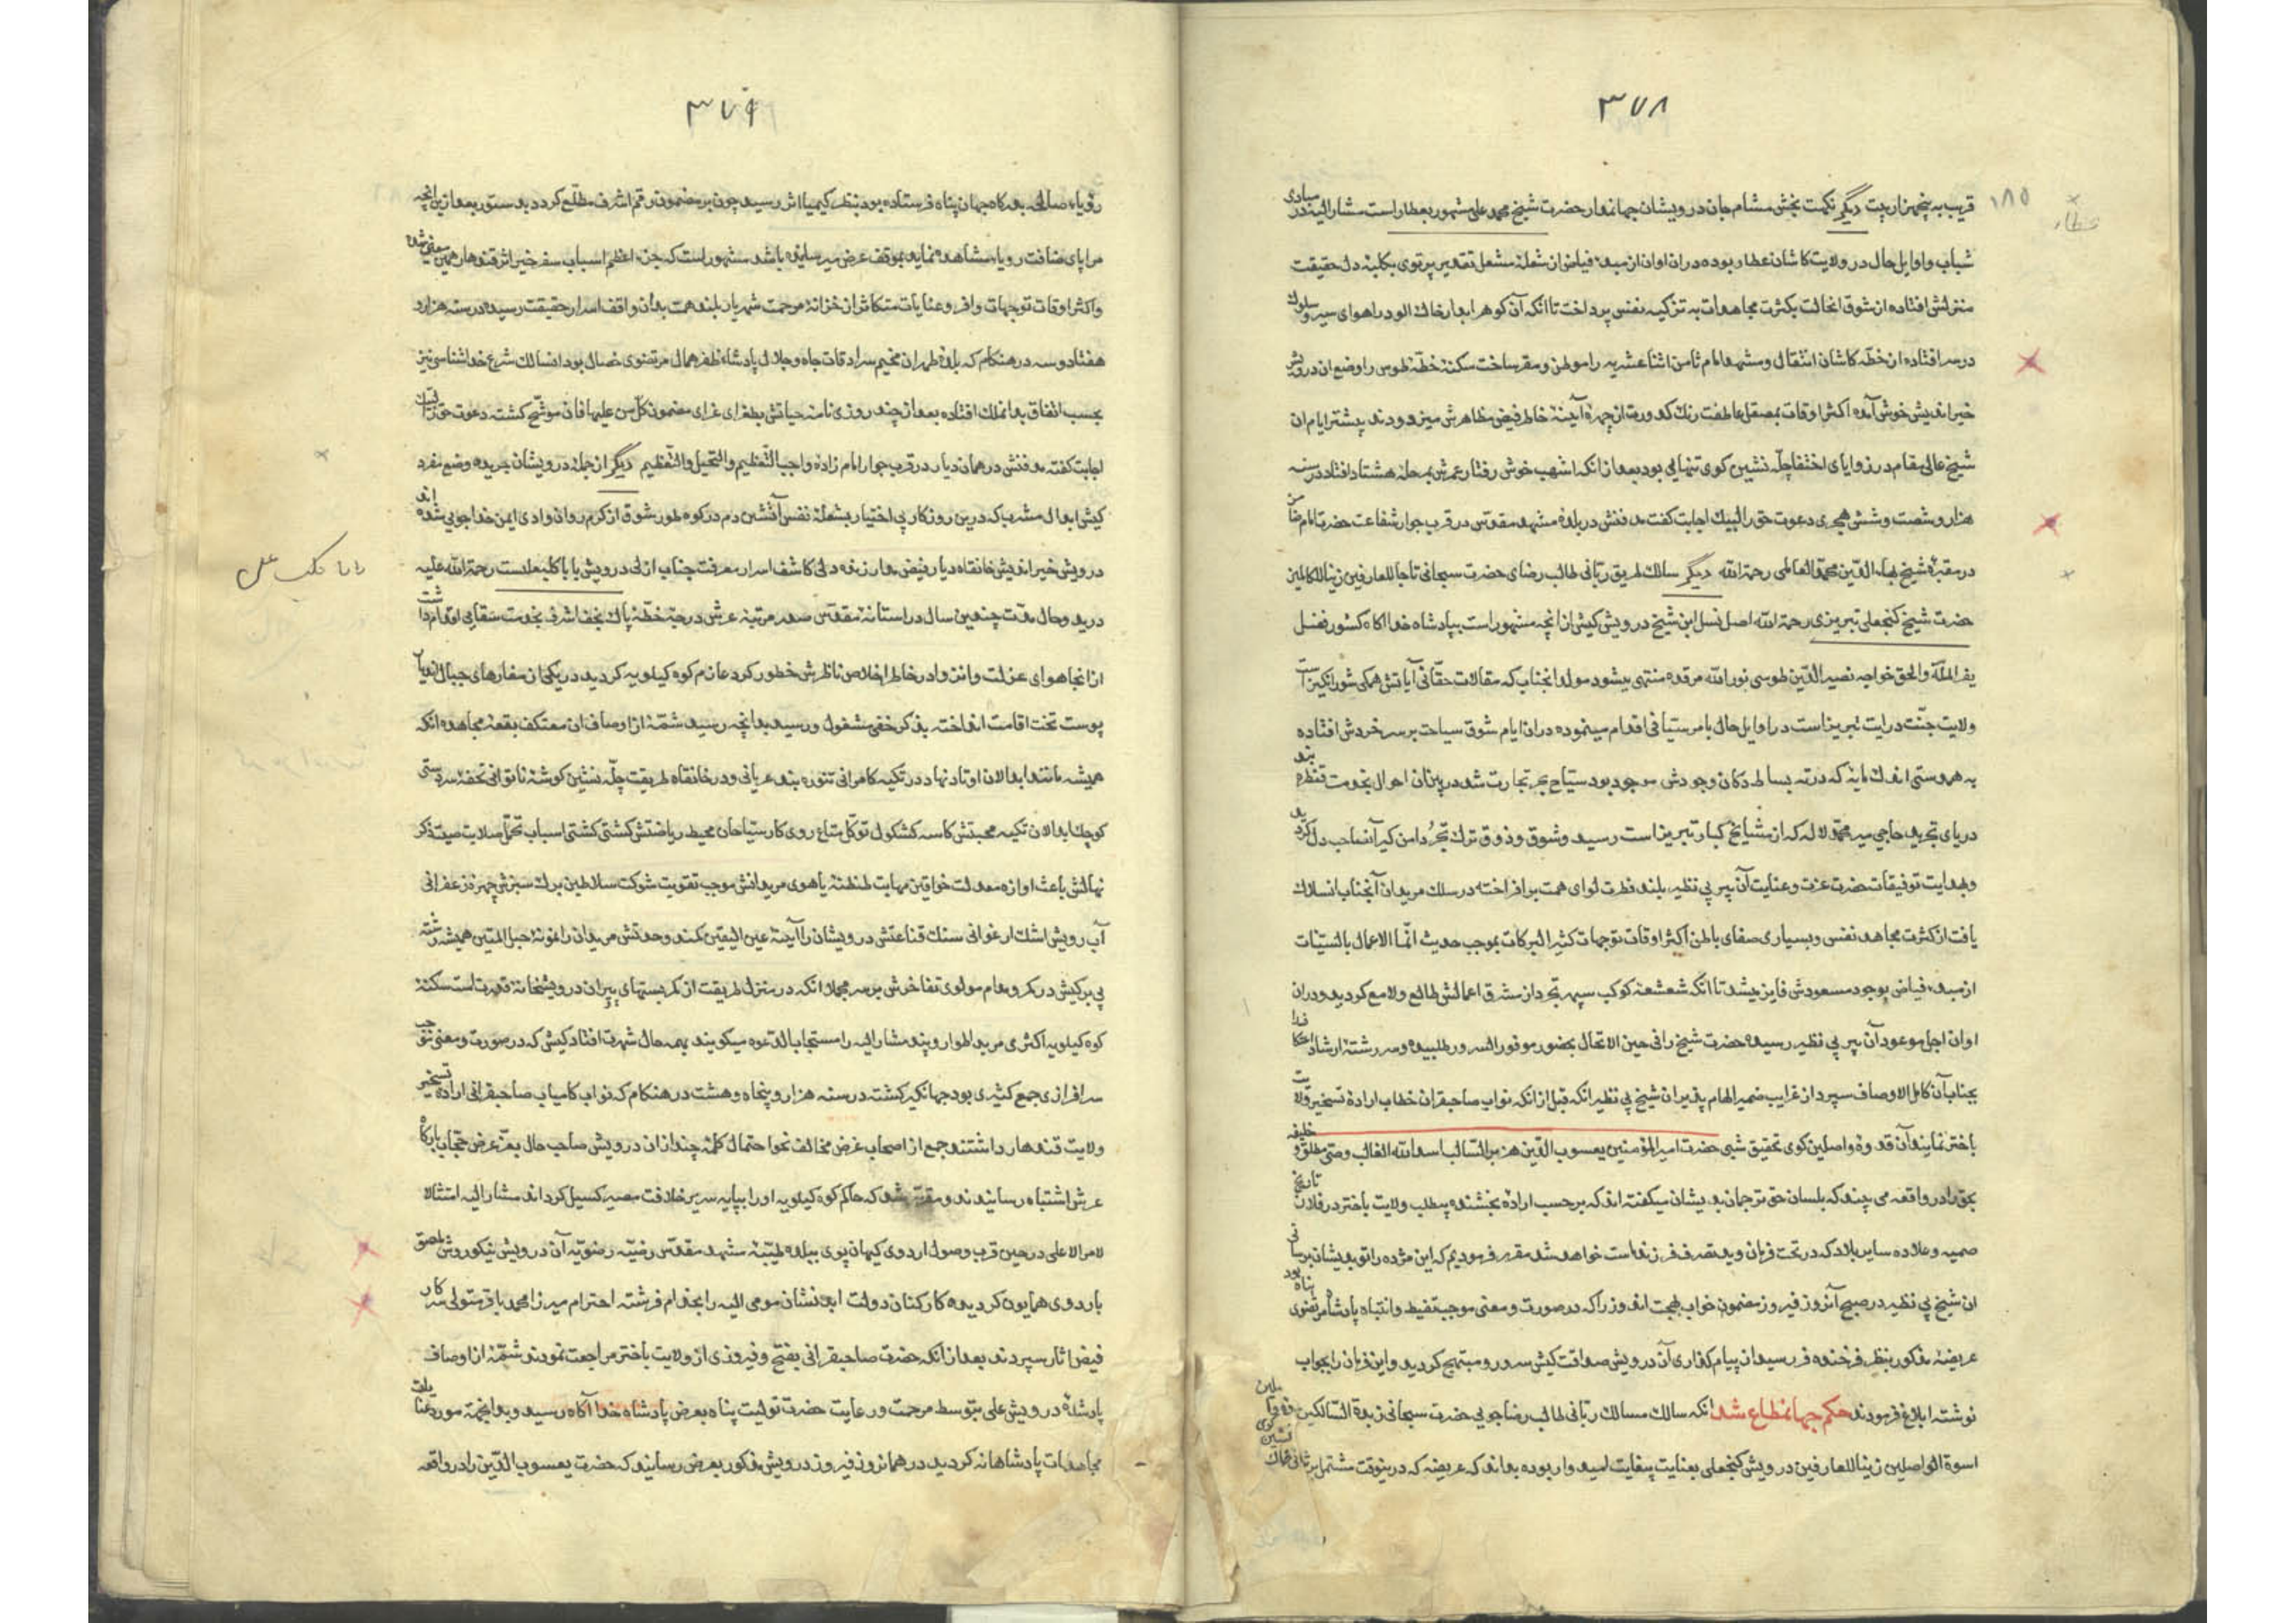 ۳۷۸
۱۸۵
عطار
قریب به پنجهزار بیت دیگر نکهت بخش مشام جان درویشان جهاندار حضرت شیخ محمد علی مشهور بعطار است مشار الیه در مبادی
شباب و اوایل حال در ولایت کاشان عطار بوده در ان اوان از مبدء فیاض از شعلهٔ مشعل تقدیر پرتوی بکلبهٔ دل حقیقت
منزلش افتاده از شوق انحالت بکثرت مجاهدات به تزکیه نفس پرداخت تا انکه آن کوهر ابدار خاك الود را هوای سیر و سلوك
در سر افتاده از خطّه کاشان انتقال و مشهد امام ثامن اثنا عشریه را موطن و مقر ساخت سکنهٔ خطّهٔ طوس را وضع ان درویش
خیر اندیش خوش آمده اکثر اوقات بمصقل عاطفت زنك کدورت از چهرهٔ آیینهٔ خاطر فیض مظاهرش میزدودند بیشتر ایام ان
شیخ عالی مقام در زوایای اختفا چلّه نشین کوی تنهایی بود بعد از انکه اشهب خوش رفتار عمرش بمرحلهٔ هشتاد افتاد در سنه
هزار و شصت و شش هجری دعوت حق را لبیك اجابت کفت مدفنش در بلدهٔ مشهد مقدس در قرب جوار شفاعت حضرت امام ضامن
در مقبرهٔ شیخ بهاء الدّین محمّد العاملی رحمة الله دیگر سالك طریق ربّانی طالب رضای حضرت سبحانی تاجا للعارفین زینا للکاملین
حضرت شیخ کنجعلی تبریزی رحمة الله اصل نسل ابن شیخ درویش کیش از انچه مشهور است بپادشاه خدا اکاه کشور فضل
نصیر الملّة والحق خواجه نصیر الدّین طوسی نور الله مرقده منتهی میشود مولد انجناب که مقالات حقّانی آیاتش همکی شورانکیز است
ولایت جنّت درایت تبریز است در اوایل حال بامر ستیافی اقدام مینموده در ان ایام شوق سیاحت بر سر خردش افتاده
به همدستی اندك مایهٔ که در ته بساط دکان وجودش موجود بود سیّاح بحر تجارت شد در پینان احوال بخدمت قنطرهٔ بند
دریای تجرید حاجی میر محمّد لاله که از مشایخ کبار تبریز است رسید و شوق و ذوق ترك تجرّد دامن کیر آنصاحب دل کردید
و بهدایت توفیقات حضرت عزت و عنایت آن پیر بی نظیر بلند فطرت لوای همت برافراخته در سلك مریدان آنجناب انسلاك
یافت از کثرت مجاهد نفس و بسیاری صفای باطن اکثر اوقات توجهات کثیر البرکات بموجب حدیث انّما الاعمال بالنیّات
از مبدء فیاض بوجود مسعودش فایز میشد تا انکه شعشعهٔ کوکب سپهر تجرد از مشرق اعمالش طالع و لامع کردید و در ان
اوان اجل موعود آن پیر بی نظیر رسیده حضرت شیخ را فی حین الارتحال بحضور موفور السرور طلبیده و سر رشتهٔ ارشاد فقرا
بجناب آن کامل الاوصاف سپرد از غرایب ضمیر الهام پذیر ان شیخ بی نظیر انکه قبل از انکه نواب صاحبقران خطاب ارادهٔ تسخیر ولایت
باختر نمایند آن قدوهٔ واصلین کوی تحقیق شبی حضرت امیر المؤمنین یعسوب الدّین هزبر السالب اسد الله الغالب وصیّ مطلق و خلیفه
بحق را در واقعه می بیند که بلسان حق ترجمان بدیشان میکفته اند که برحسب ارادهٔ بخشنده بیطلب ولایت باختر در فلان تاریخ
ضمیه و علاوه سایر بلاد که در تحت فرمان و ید تصرف فرزند ماست خواهد شد مقرر فرمودیم که این مژده را تو بدیشان برسانی
ان شیخ بی نظیر در صبح آنروز فیروز مضمون خواب بهجت اندوز را که در صورت و معنی موجب تقیظ و انتباه پادشاه مرتضوی پناه بود
عریضهٔ مذکور بنظر فرخنده فر رسید ان پیام کذاری آن درویش صداقت کیش مسرور و مبتهج کردید و این فرمان را بجواب
نوشته ابلاغ فرمودند حکم جهانمطاع شد انکه سالك مسالك ربّانی طالب رضا جویی حضرت سبحانی زبدة السّالکین
اسوة الواصلین زینا للعارفین درویش کنجعلی بعنایت بیغایت امیدوار بوده بداند که عریضه که درینوقت مشتمل بر
۳۷۹
رؤیاء صالحه بدرکاه جهان پناه فرستاده بود بنظر کیمیا اثر رسید چون بر مضمون رقم اشرف مطّلع کردد بدستور بعد ازین انچه
مرایای ضافت رویاء مشاهده نماید بموقف عرض میرسانیده باشد مشهور است که جزء اعظم اسباب سفر خیر اثر قندهار همین معنی شد
و اکثر اوقات توجهات وافر و عنایات متکاثر از خزانهٔ مرحمت شهریار بلند همت بدان واقف اسرار حقیقت رسیده در سنه هزار و
هفتاد و سه در هنکام که بلدهٔ طهران مخیم سرادقات جاه و جلال پادشاه ظفر همال مرتضوی خصال بود انسالك شرع خدا شناسی نیز
بحسب اتفاق بدانملك افتاده بعد از چند روزی نامهٔ حیاتش بطغرای غرای مضمون کل من علیها فان موشّح کشته دعوت حق را لبیك
اجابت کفته مدفنش در همان دیار در قرب جوار امام زادهٔ واجب التّعظیم والتبجیل والتعظیم دیگر از جمله درویشان جریده وضع منفرد
کیش ابدال مشرب که درین روزکار بی اختیار بشعلهٔ نفس آتشین دم در کوه طور شوق از کرم روان وادی ایمن خدا جویی شده اند
درویش خیر اندیش خانقاه دیار فیض مدار زنده دلی کاشف اسرار معرفت جناب ازلی درویش بابا کلبعلیست رحمة الله علیه
بابا کلب علی
در بدو حال مدّت چندین سال در استانهٔ مقدّس صدر مرتبهٔ عرش درجهٔ خطّهٔ پاك نجف اشرف بخدمت سقایی اقدام داشت
از انجا هوای عزلت و انزوا در خاطر اخلاص ناظرش خطور کرد عازم کوه کیلویه کردید در یکی از مغارهای جبال اندیار
پوست تخت اقامت انداخته بذکر خفی مشغول و رسید بدانچه رسید شمّهٔ از اوصاف ان معتکف بقعهٔ مجاهده انکه
همیشه مانند ابدالان اوتاد نهاد در تکیه کامرانی تنوره بند عریانی و در خانقاه طریقت چلّه نشین کوشهٔ ناتوانی تحفهٔ سر دستی
کوچك ابدالان تکیه محبتش کاسه کشکول توکّل متاع روی کار سیّاحان محیط ریاضتش کشتی کشتی اسباب تحمّل صلابت صیت ذکر
نهالش باعث اوازه معدلت خواقین مهابت طنطنهٔ یاهوی مریدانش موجب تقویت شوکت سلاطین برك سبزش چهرهٔ زعفرانی
آب رویش اشك ارغوانی سنك قناعتش درویشان را آیینهٔ عین الیقین کمند وحدتش مریدان را نمونهٔ حبل المتین همیشه رشتهٔ
بی برکیش در کمر و مدام مولوی تفاخرش بر سر مجملا انکه در منزل طریقت از کمر بستهای پیران درویشخانهٔ قدرت است سکنهٔ
کوه کیلویه اکثری مرید اطوار و پند مشار الیه را مستجاب الدعوه میکویند بهمه حال شهرت افتاد کیش که در صورت و معنی موجب
سرافرازی جمع کثیری بود جهانکیر کشته در سنه هزار و پنجاه و هشت در هنکام که نواب کامیاب صاحبقرانی ارادهٔ تسخیر
ولایت قندهار داشتند جمع از اصحاب غرض مخالف نحوا احتمال کلمهٔ چند از ان درویش صاحب حال بعزّ عرض حجّاب بارکاه
عرش اشتباه رسانیدند و مقرّر شد که حاکم کوه کیلویه او را بپایه سریر خلافت مصیر کسیل کرداند مشار الیه امتثالا
لامر الاعلی در حین قرب وصول اردوی کیهان پوی ببلدهٔ طیّبهٔ مشهد مقدّس رضیّه رضویّه آن درویش نیکو روش ملصق
باردوی همایون کردیده کارکنان دولت ابد نشان مومی الیه را بخدام فرشته احترام میرزا محمد باقر متولی سرکار
فیض اثار سپردند بعد از انکه حضرت صاحبقرانی بفتح و فیروزی از ولایت باختر مراجعت نمودند شمّهٔ از اوصاف
پادشدهٔ درویش علی بتوسط مرحمت و رعایت حضرت تولیت پناه بعرض پادشاه خدا آکاه رسید و بدانجهة مورد عنایات
مجاهدات پادشاهانه کردید در همانروز فیروز درویش مذکور بعرض رسانید که حضرت یعسوب الدّین را در واقعه